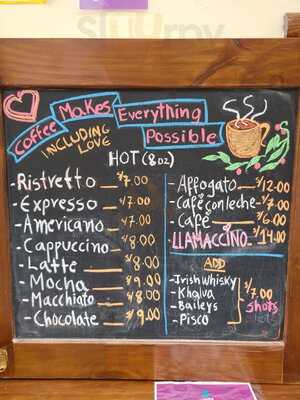 Coffee Makes Everything Possible
INCLUDING LOVE
HOT (8 oz)
- Ristretto S/7.00
- Expresso S/7.00
- Americano S/7.00
- Cappuccino S/8.00
- Latte S/8.00
- Mocha S/9.00
- Macchiato S/8.00
- Chocolate S/9.00
- Affogato S/12.00
- Café con leche S/7.00
- Café S/6.00
LLAMACCINO S/14.00
ADD
- Irish Whisky
- Khalva
- Baileys
- Pisco
S/7.00
Shots